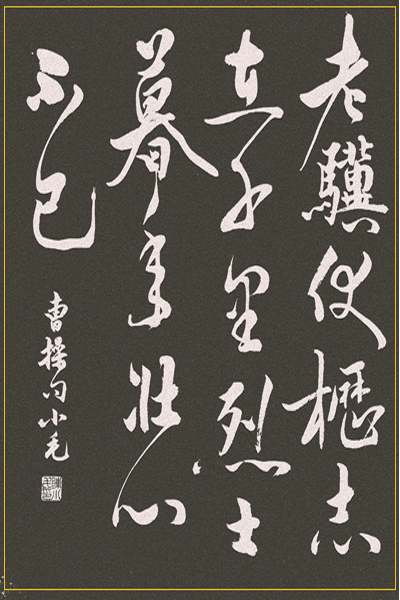 老驥伏櫪志
在千里烈士
暮年壯心
不已
曹操句小毛